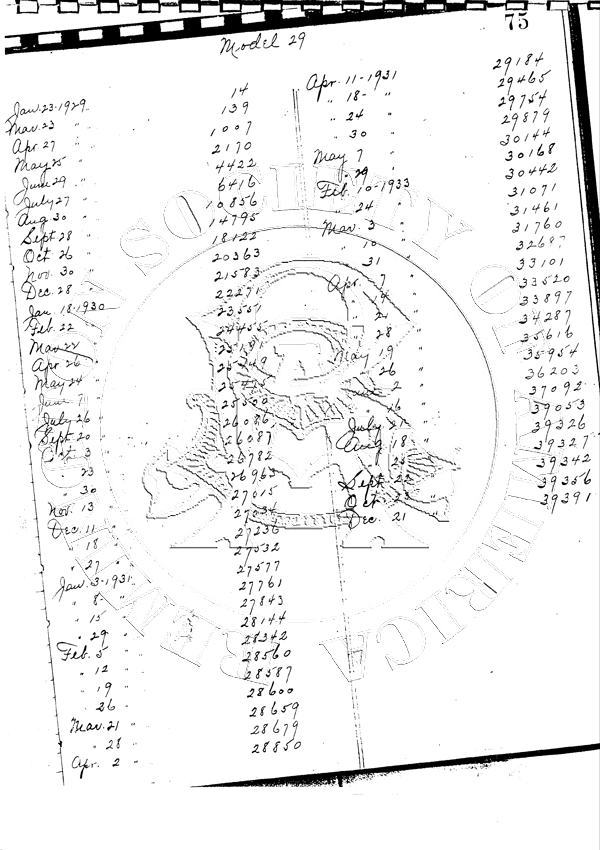 75
Model 29
Jan. 23-1929 14
Mar. 23 " 139
Apr. 27 " 1007
May 25 " 2170
June 29 " 4422
July 27 " 6416
Aug 30 " 10856
Sept 28 " 14795
Oct 26 " 18122
Nov. 30 " 20363
Dec. 28 " 21583
Jan. 18-1930 22271
Feb. 22 " 23551
Mar 22 " 24455
Apr 26 "
May 24 "
June 7 " 25425
July 26 " 25500
Sept 20 " 26086
Oct 3 " 26087
" 23 " 26782
" 30 " 26963
Nov. 13 " 27015
Dec. 11 " 27034
" 18 " 27236
" 27 " 27532
Jan. 3-1931 27577
" 8- " 27761
" 15 " 27843
" 29 " 28144
Feb. 5 " 28342
" 12 " 28560
" 19 " 28587
" 26 " 28600
Mar. 21 " 28659
" 28 " 28679
Apr. 2 " 28850
Apr. 11-1931 29184
" 18- " 29465
" 24 " 29754
" 30 " 29879
May 7 " 30144
" 29 " 30168
Feb. 10-1933 30442
" 24 " 31071
Mar. 3 " 31461
" 10 " 31760
" 31 " 32687
Apr. 7 " 33101
" 14 " 33520
" 21 " 33897
" 28 " 34287
May 19 " 35616
" 26 " 35954
June 2 " 36203
" 16 " 37092
July 21 " 39053
Aug 18 " 39326
" 25 " 39327
Sept 22 " 39342
Oct 23 " 39356
Dec. 21 " 39391